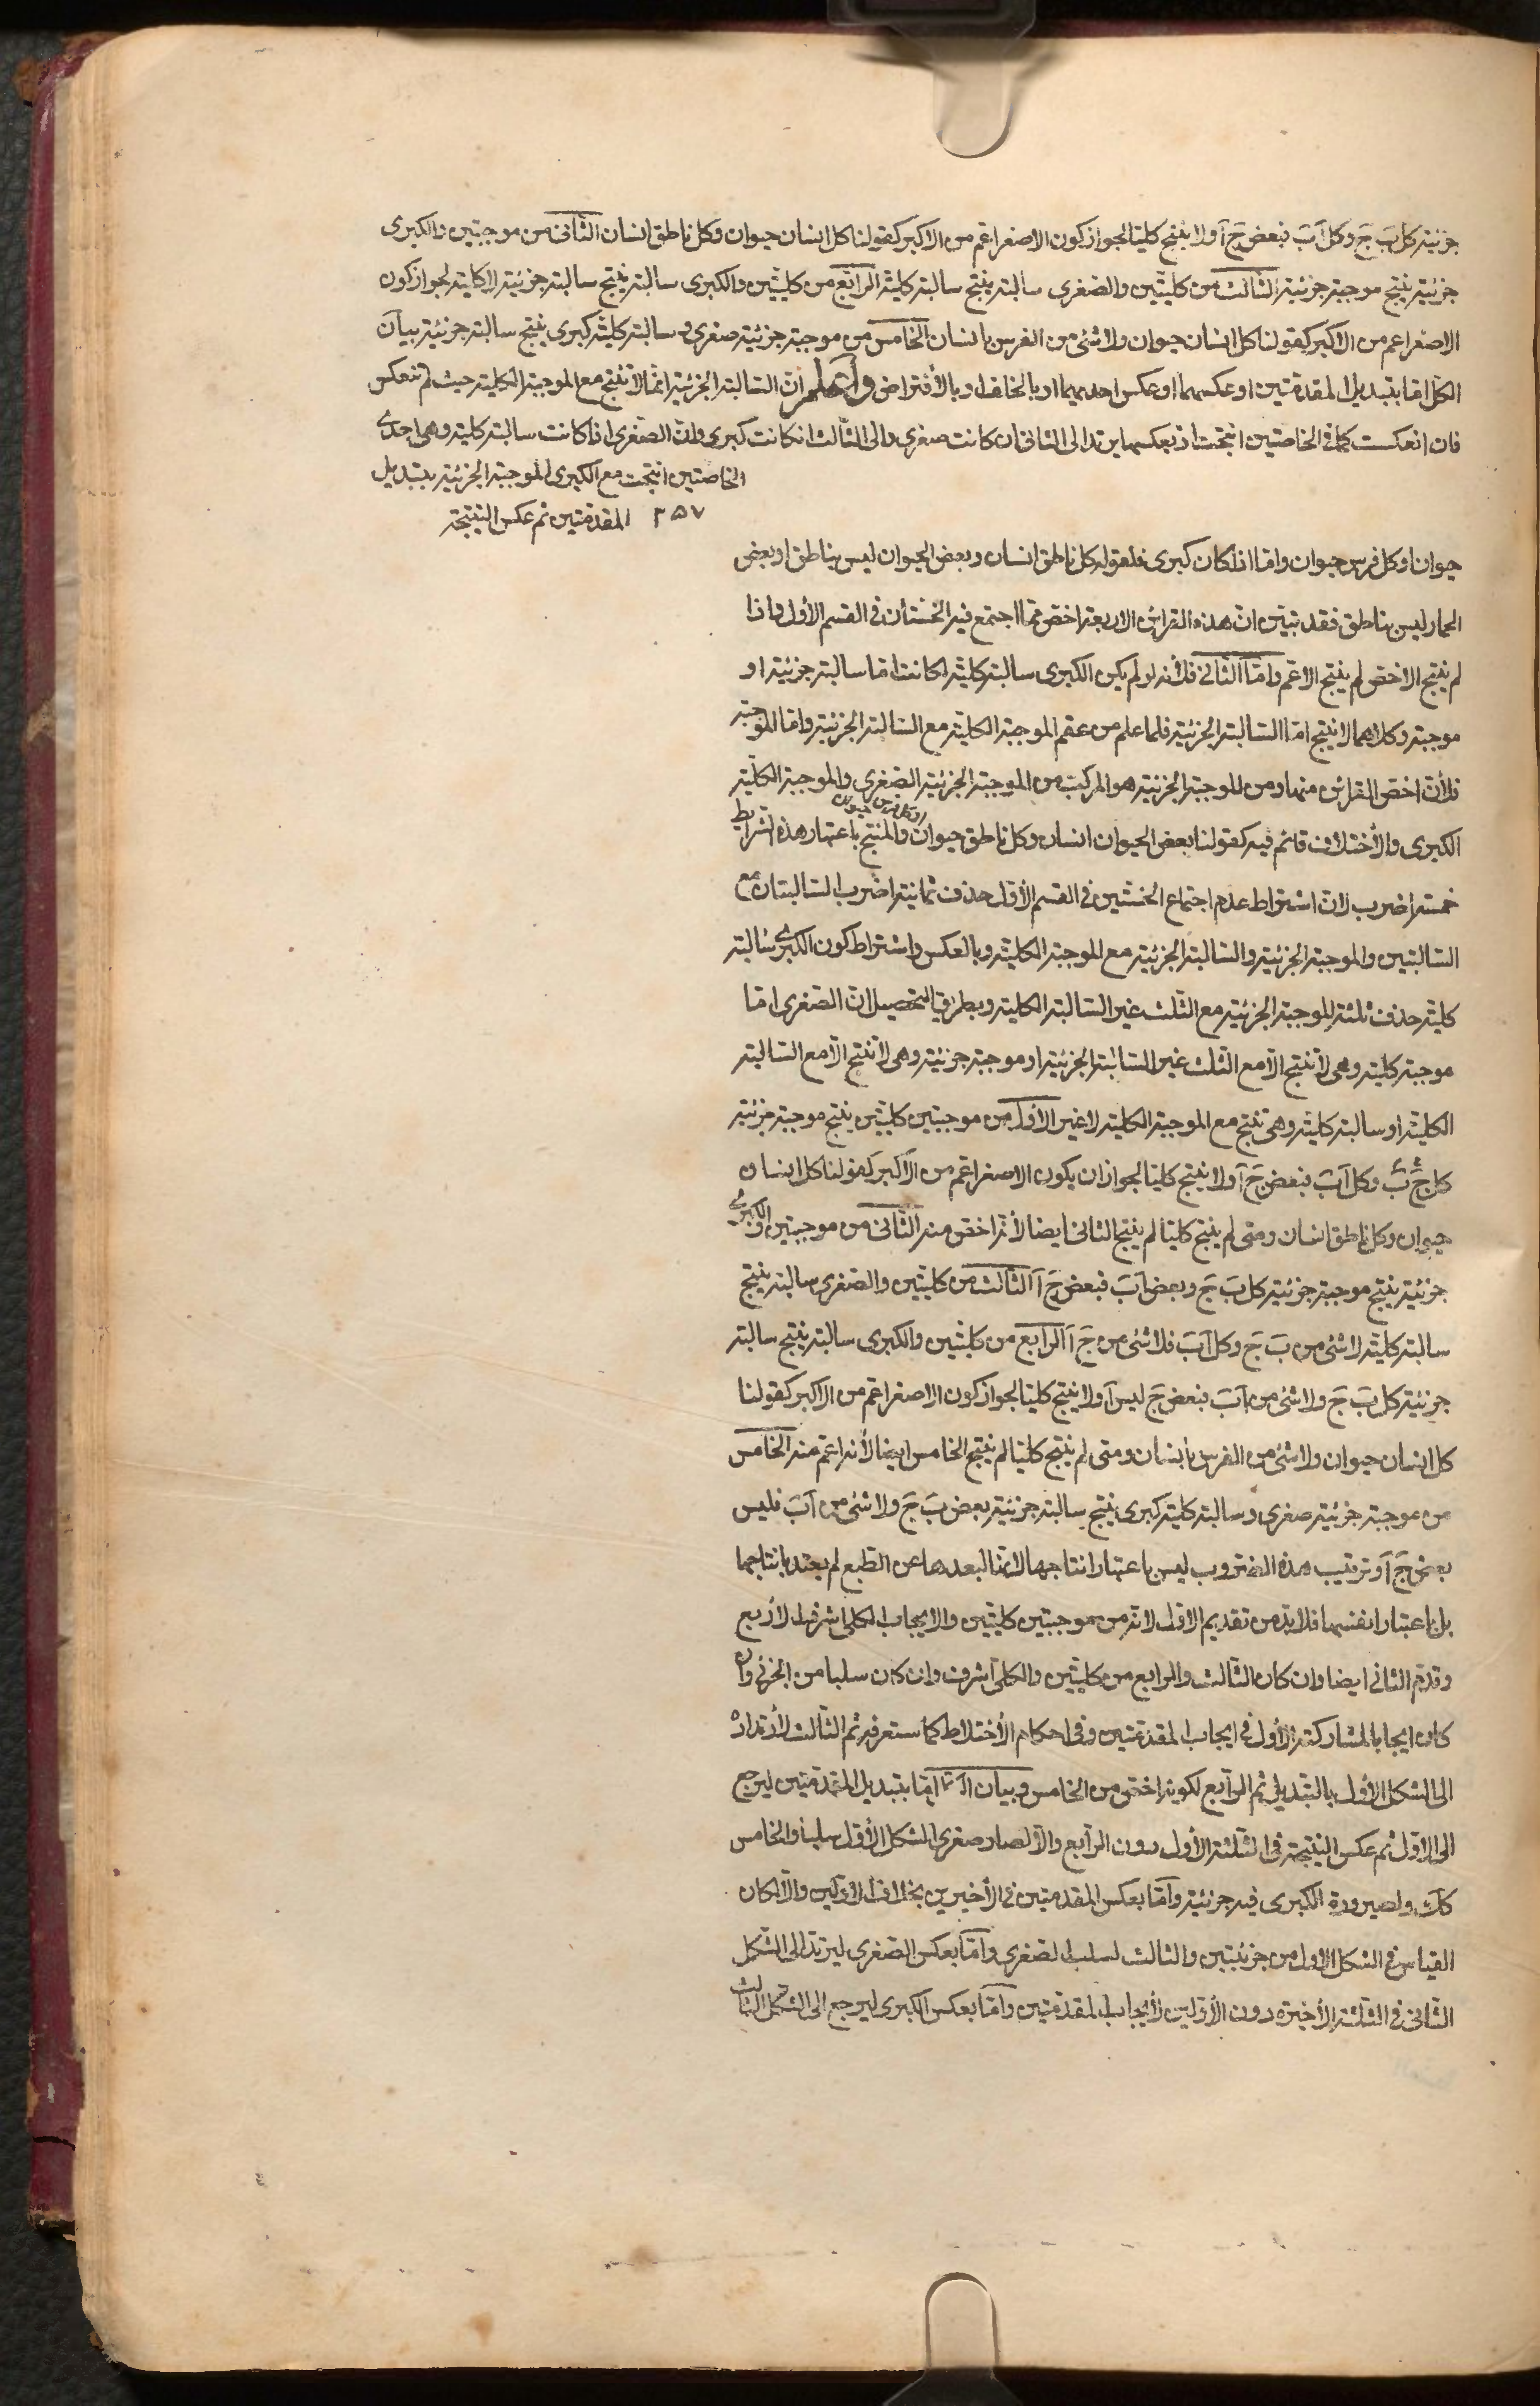 جزئية كل بَ جَ وكل آبَ فبعض جَ آ ولا ينتج كليا لجواز كون الاصغر اعم من الاكبر كقولنا كل انسان حيوان وكل ناطق انسان الثانى من موجبتين والكبرى
جزئية ينتج موجبة جزئية الثالث من كليتين والصغرى سالبة ينتج سالبة كلية الرابع من كليتين والكبرى سالبة ينتج سالبة جزئية لا كلية لجواز كون
الاصغر اعم من الاكبر كقولنا كل انسان حيوان ولا شئ من الفرس بانسان الخامس من موجبة جزئية صغرى وسالبة كلية كبرى ينتج سالبة جزئية بيان
الكل اما بتبديل المقدمتين او عكسهما او عكس احديهما او بالخلف او بالأفتراض واعلم ان السالبة الجزئية انما لا تنتج مع الموجبة الكلية حيث لم تنعكس
فان انعكست كما فى الخاصتين انتجت اذ بعكسها يرتد الى الثانى ان كانت صغرى والى الثالث ان كانت كبرى وان الصغرى اذا كانت سالبة كلية وهى احدى
الخاصتين انتجت مع الكبرى الموجبة الجزئية بتبديل
المقدمتين ثم عكس النتيجة ٢٥٧
حيوان او كل فرس حيوان واما اذا كان كبرى فلقوله كل ناطق انسان وبعض الحيوان ليس بناطق او بعض
الحمار ليس بناطق فقد تبين ان هذه القراين الاربعة اخص مما اجتمع فيه الخستان فى القسم الأول واذا
لم ينتج الاخص لم ينتج الاعم واما الثانى فلأنه لو لم يكن الكبرى سالبة كلية لكانت اما سالبة جزئية او
موجبة وكلاهما لا ينتج اما السالبة الجزئية فلما علم من عقم الموجبة الكلية مع السالبة الجزئية واما الموجبة
فلأن اخص القراين منها ومن الموجبة الجزئية هو المركب من الموجبة الجزئية الصغرى والموجبة الكلية
الكبرى والأختلاف قائم فيه كقولنا بعض الحيوان انسان وكل ناطق حيوان او كل فرس حيوان والمنتج باعتبار هذه الشرايط
خمسة اضرب لان اشتراط عدم اجتماع الخستين فى القسم الأول حذف ثمانية اضرب السالبتان مع
السالبتين والموجبة الجزئية والسالبة الجزئية مع الموجبة الكلية وبالعكس واشتراط كون الكبرى سالبة
كلية حذف ثلثة الموجبة الجزئية مع الثلث غير السالبة الكلية وبطريق التحصيل ان الصغرى اما
موجبة كلية وهى لا تنتج الا مع الثلث غير السالبة الجزئية او موجبة جزئية وهى لا تنتج الا مع السالبة
الكلية او سالبة كلية وهى تنتج مع الموجبة الكلية لا غير الاول من موجبتين كليتين ينتج موجبة جزئية
كل جَ بَ وكل آبَ فبعض جَ آ ولا ينتج كليا لجواز ان يكون الاصغر اعم من الاكبر كقولنا كل انسان
حيوان وكل ناطق انسان ومتى لم ينتج كليا لم ينتج الثانى ايضا لأنه اخص منه الثانى من موجبتين والكبرى
جزئية ينتج موجبة جزئية كل بَ جَ وبعض آبَ فبعض جَ آ الثالث من كليتين والصغرى سالبة ينتج
سالبة كلية لا شئ من بَ جَ وكل آبَ فلا شئ من جَ آ الرابع من كليتين والكبرى سالبة ينتج سالبة
جزئية كل بَ جَ ولا شئ من آبَ فبعض جَ ليس آ ولا ينتج كليا لجواز كون الاصغر اعم من الاكبر كقولنا
كل انسان حيوان ولا شئ من الفرس بانسان ومتى لم ينتج كليا لم ينتج الخامس ايضا لأنه اعم منه الخامس
من موجبة جزئية صغرى وسالبة كلية كبرى ينتج سالبة جزئية بعض بَ جَ ولا شئ من آبَ فليس
بعض جَ آ وترتيب هذه الضروب ليس باعتبار انتاجها لانها لبعدها عن الطبع لم يعتد بانتاجها
بل باعتبار انفسها فلا بد من تقديم الاول لانه من موجبتين كليتين والايجاب الكلى اشرف الاربع
وقدم الثانى ايضا وان كان الثالث والرابع من كليتين والكلى اشرف وان كان سلبا من الجزئى وان
كان ايجابا لمشاركته الأول فى ايجاب المقدمتين وفى احكام الأختلاط كما ستعرفه ثم الثالث لأرتداده
الى الشكل الأول بالتبديل ثم الرابع لكونه اخص من الخامس وبيان اما بتبديل المقدمتين ليرجع
الى الاول ثم عكس النتيجة فى الثلثة الأول دون الرابع والا لصار صغرى الشكل الأول سلبا والخامس
كك ولصيرورة الكبرى فيه جزئية واما بعكس المقدمتين فى الأخيرين بخلاف الاولين والا لكان
القياس فى الشكل الاول من جزئيتين والثالث لسلب الصغرى واما بعكس الصغرى ليرتد الى الشكل
الثانى فى الثلثة الأخيرة دون الأولين لأيجاب المقدمتين واما بعكس الكبرى ليرجع الى الشكل الثالث